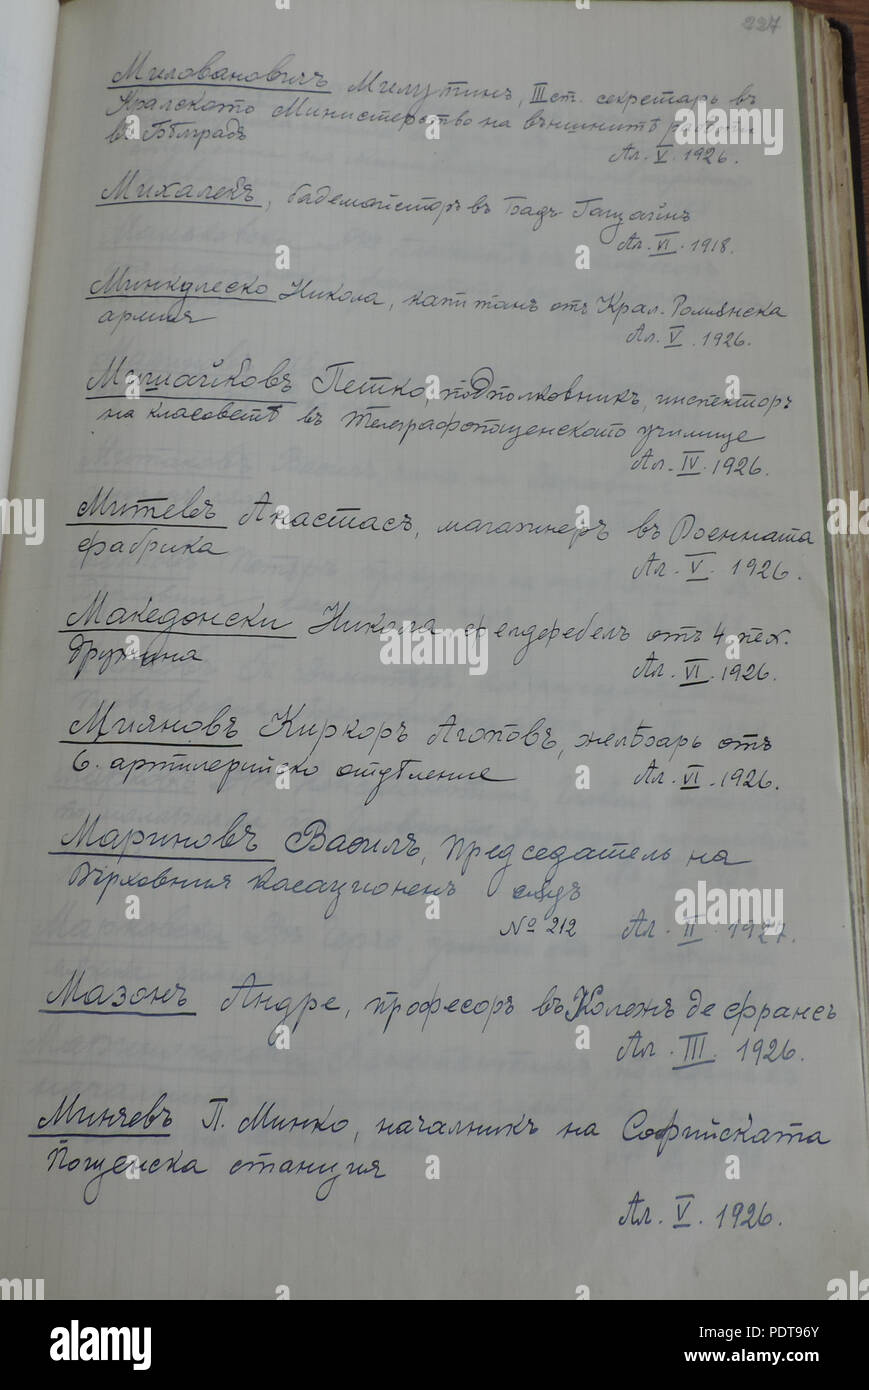 227
Миловановичъ Милутинъ, III ст. секретарь въ
Кралското Министерство на външнитѣ работи
въ Бѣлградъ
Ал. V. 1926.
Михалекъ, бадемайсторъ въ Бадъ Гащайнъ
Ал. VI. 1918.
Минкулеско Никола, капитанъ отъ Крал. Ромънска
армия
Ал. V. 1926.
Мишайковъ Петко, подполковникъ, инспекторъ
на класоветѣ въ Телеграфопощенското училище
Ал. IV. 1926.
Митевъ Анастасъ, магазинеръ въ Военната
фабрика
Ал. V. 1926.
Македонски Никола фелдфебелъ отъ 4 пех.
дружина
Ал. VI. 1926.
Мияновъ Киркоръ Агоповъ, желѣзарь отъ
6. артилерийско отдѣление
Ал. VI. 1926.
Мариновъ Василъ, председатель на
Върховния касационенъ сѫдъ
№ 212 Ал. II. 1927.
Мазонъ Андре, професоръ въ Колежъ де Франсъ
Ал. III. 1926.
Минчевъ П. Минко, началникъ на Софийската
Пощенска станция
Ал. V. 1926.
alamy
Image ID: PDT96Y
www.alamy.com